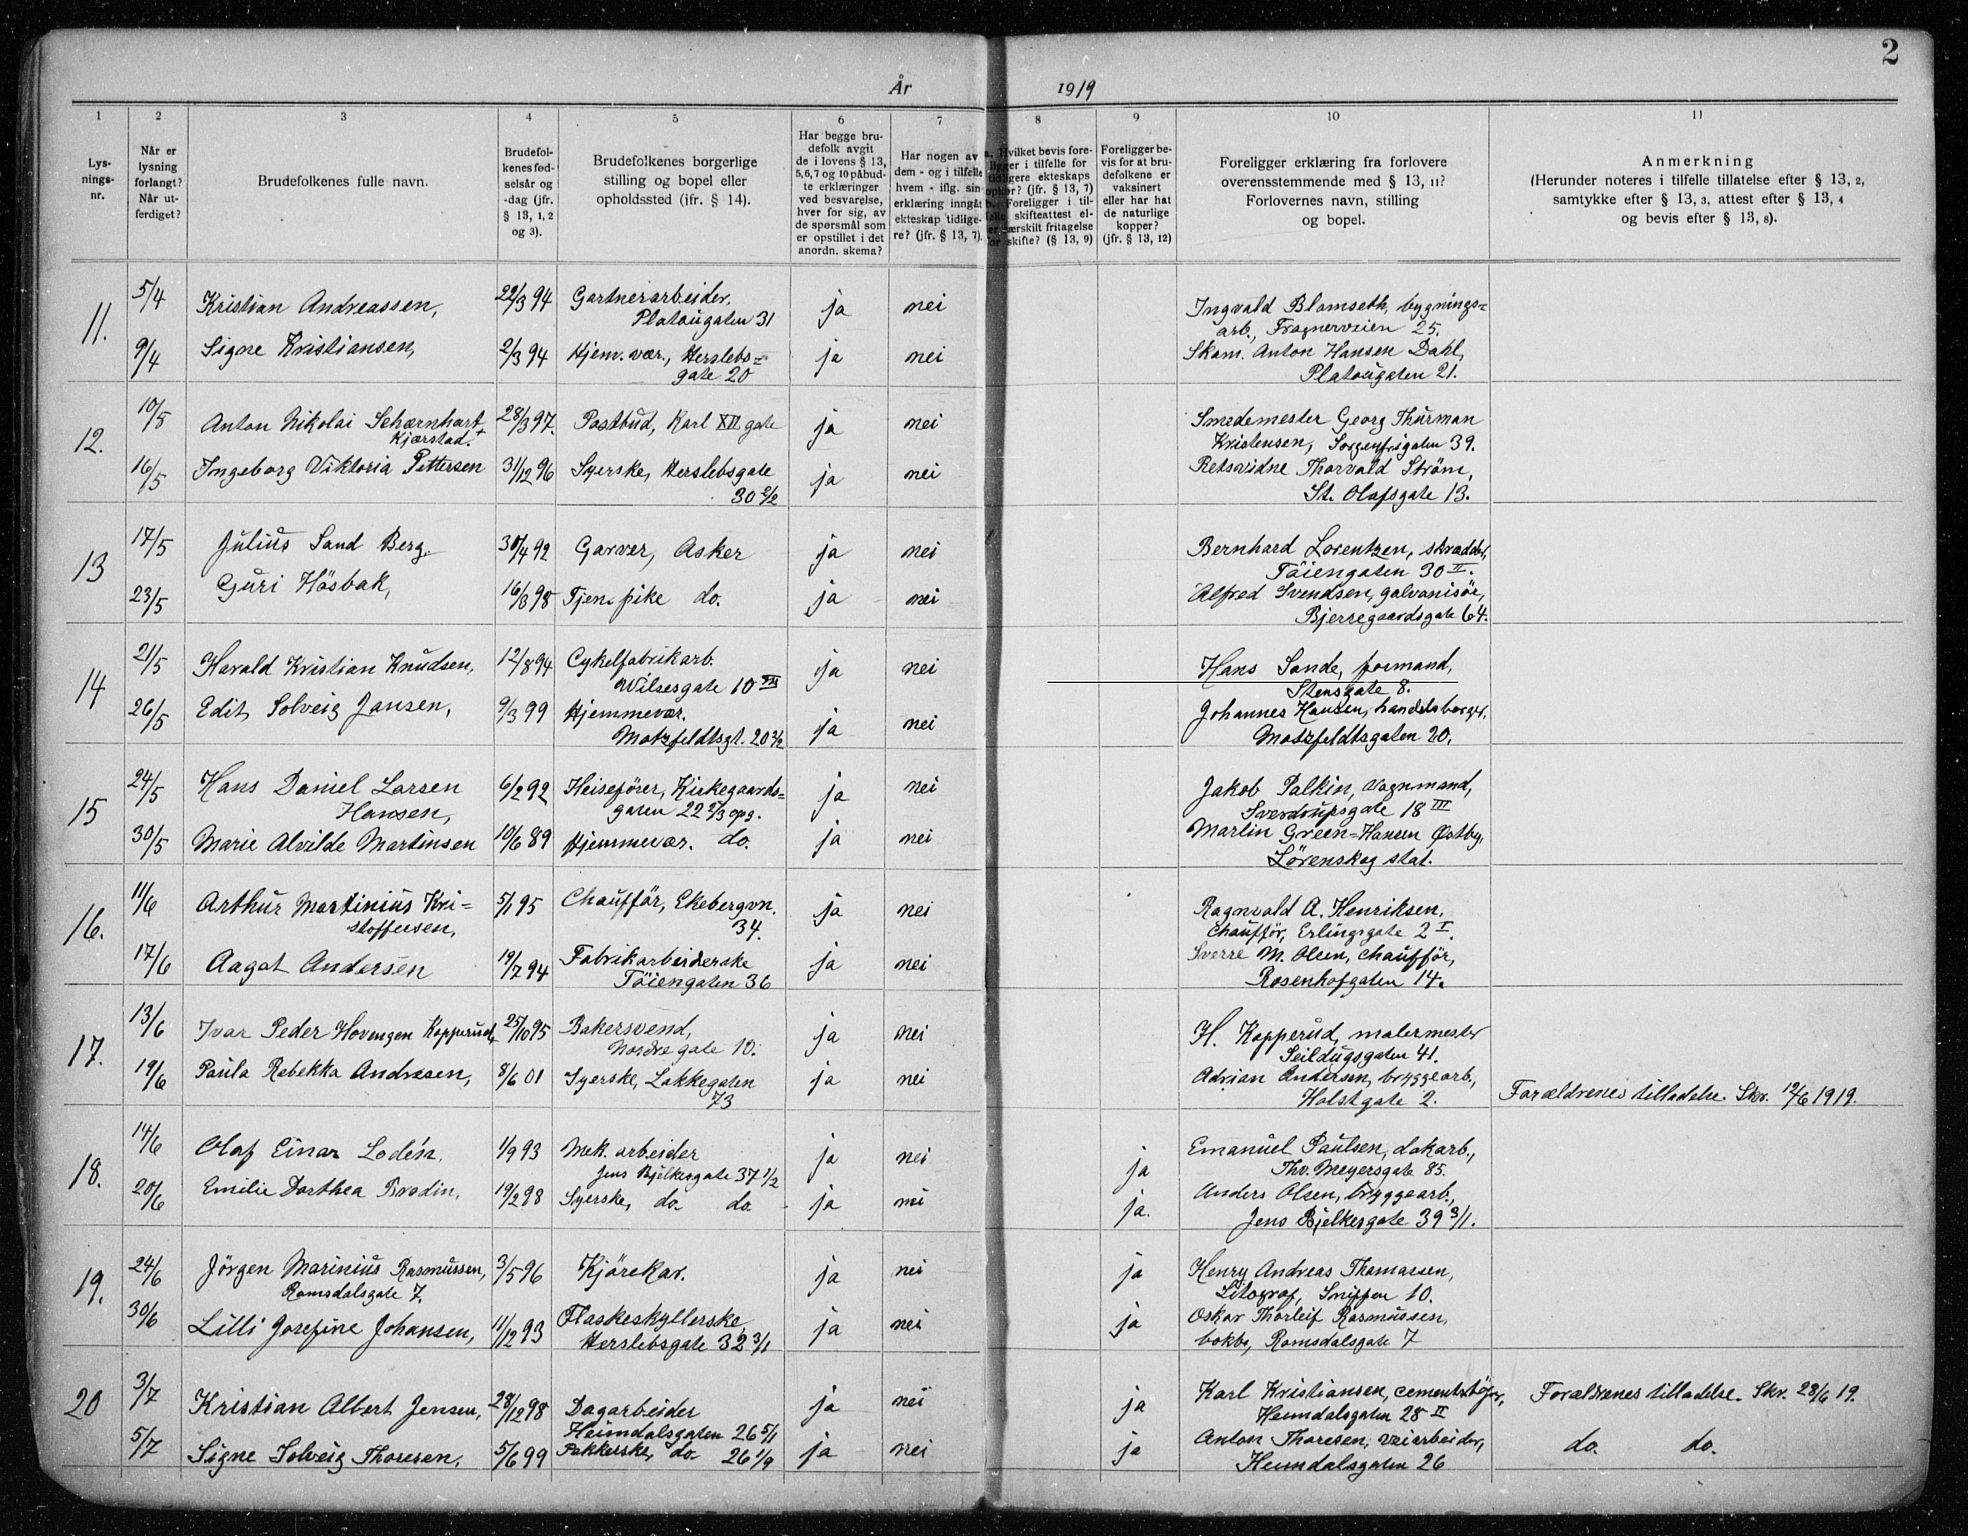 2
År 1919
1 2 3 4 5 6 7 8 9 10 11
Lys-
nings-
nr.
Når er
lysning
forlangt?
Når ut-
ferdiget?
Brudefolkenes fulle navn.
Brudefol-
kenes fød-
selsår og
-dag (jfr.
§ 13, 1, 2
og 3).
Brudefolkenes borgerlige
stilling og bopel eller
opholdssted (ifr. § 14).
Har begge bru-
defolk avgit
de i lovens § 13,
5,6,7 og 10 påbud-
te erklæringer
ved besvarelse,
hver for sig, av
de spørsmål som
er opstillet i det
anordn. skema?
Har nogen av
dem - og i tilfelle
hvem - iflg. sin
erklæring inngåt
ekteskap tidlige-
re? (jfr. § 13, 7).
a. Hvilket bevis fore-
ligger i tilfelle for
tidligere ekteskaps
ophør? (jfr. § 13, 7)
b. Foreligger i til-
felle skifteattest el-
ler særskilt fritagelse
for skifte? (§ 13, 9)
Foreligger be-
vis for at bru-
defolkene er
vaksinert
eller har hat
de naturlige
kopper?
(jfr. § 13, 12)
Foreligger erklæring fra forlovere
overensstemmende med § 13, 11?
Forlovernes navn, stilling
og bopel.
Anmerkning
(Herunder noteres i tilfelle tillatelse efter § 13, 2,
samtykke efter § 13, 3, attest efter § 13, 4
og bevis efter § 13, 8).
11. 5/4 Kristian Andreassen, 29/3 94 Gartnerarbeider, ja nei Ingvald Blomseth, bygnings=
Platougaten 31 arb., Frognerveien 25.
9/4 Signe Kristiansen, 2/3 94 Hjem. vær., Herslebs= ja nei Skom. Anton Hansen Dahl,
gate 20 Platougaten 21.
12. 10/5 Anton Nikolai Scharnhart 28/3 97. Postbud, Karl XII gate ja nei Smedemester Georg Thurman
Kjærstad. Kristensen, Sorgenfrigaten 39.
16/5 Ingeborg Viktoria Pettersen 31/12 96 Syerske, Herslebsgate ja nei Retsvidne Thorvald Strøm,
30 2/2 St. Olafsgate 13.
13 17/5 Julius Sand Berg. 30/4 92 Garver, Asker ja nei Bernhard Lorentzen, skrædder,
Tøiengaten 30 II.
23/5 Guri Høsbak, 16/3 98 Tjen. pike do. ja nei Alfred Svendsen, galvanisør,
Bjerregaardsgate 64.
14 21/5 Harald Kristian Knudsen, 12/8 94 Cykelfabrikarb. ja nei Hans Sande, formand,
Wilsesgate 10 III Stensgate 8.
26/5 Edit Solveig Jansen, 9/3 99 Hjemmevær. ja nei Johannes Hansen, handelsborger,
Motzfeldtsgt. 20 3/2 Motzfeldtsgaten 20.
15 24/5 Hans Daniel Larsen 6/2 92 Heisefører, Kirkegaards= ja nei Jakob Palkin, Vognmand,
Hansen, gaten 22 2/3 opg. Sverdrupsgate 18 III
30/5 Marie Alvilde Martinsen 10/6 89 Hjemmevær. do. ja nei Martin Green=Hansen Østby,
Lørenskog stat.
16. 11/6 Arthur Martinius Kri= 5/1 95 Chauffør, Ekebergvn. ja nei Ragnvald A. Henriksen,
stoffersen, 34. Chauffør, Erlingsgate 2 I.
17/6 Aagot Andersen 19/7 94 Fabrikarbeiderske ja nei Sverre M. Olsen, chauffør,
Tøiengaten 36 Rosenhofgaten 14.
17. 13/6 Ivar Peder Hovengen Kopperud, 25/10 95 Bakersvend, ja nei H. Kopperud, malermester
Nordre gate 10. Seildugsgaten 41.
19/6 Paula Rebekka Andresen, 8/6 01 Syerske, Lakkegaten ja nei Adrian Andersen, bryggearb.,
73 Holstgate 2. Forældrenes tilladelse. Skr. 12/6 1919.
18. 14/6 Olaf Einar Lodén, 1/9 93 Mek. arbeider ja nei ja Emanuel Paulsen, dokarb.,
Jens Bjelkesgate 37 1/2 Thv. Meyersgate 85.
20/6 Emilie Dorthea Brodin, 19/2 98 Syerske, do. do. ja nei ja. Anders Olsen, bryggearb.,
Jens Bjelkesgate 39 3/1.
19. 24/6 Jörgen Marinius Rasmussen, 3/5 96 Kjørekar. ja nei ja Henry Andreas Thomassen,
Romsdalsgate 7. Litograf, Snippen 10.
30/6 Lilli Josefine Johansen, 11/12 93 Flaskeskyllerske, ja nei ja Oskar Thorleif Rasmussen,
Herslebsgate 32 3/1 bokb., Romsdalsgate 7
20 3/7 Kristian Albert Jensen, 28/12 98 Dagarbeider ja nei ja Karl Kristiansen, cementstøper, Forældrenes tilladelse. Skr. 28/6 19.
Heimdalsgaten 26 5/1 Heimdalsgaten 28 II
5/7 Signe Solveig Thoresen, 5/6 99 Pakkerske, do. 26 1/9 ja nei ja Anton Thoresen, veiarbeider, do. do.
Heimdalsgaten 26